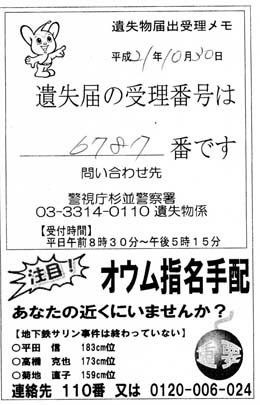 遺失物届出受理メモ
平成21年10月30日
遺失届の受理番号は
6787 番です
問い合わせ先
警視庁杉並警察署
03-3314-0110 遺失物係
【受付時間】
平日午前8時30分～午後5時15分
注目!
オウム指名手配
あなたの近くにいませんか?
【地下鉄サリン事件は終わっていない】
○平田 信 183cm位
○高橋 克也 173cm位
○菊地 直子 159cm位
連絡先 110番 又は 0120-006-024